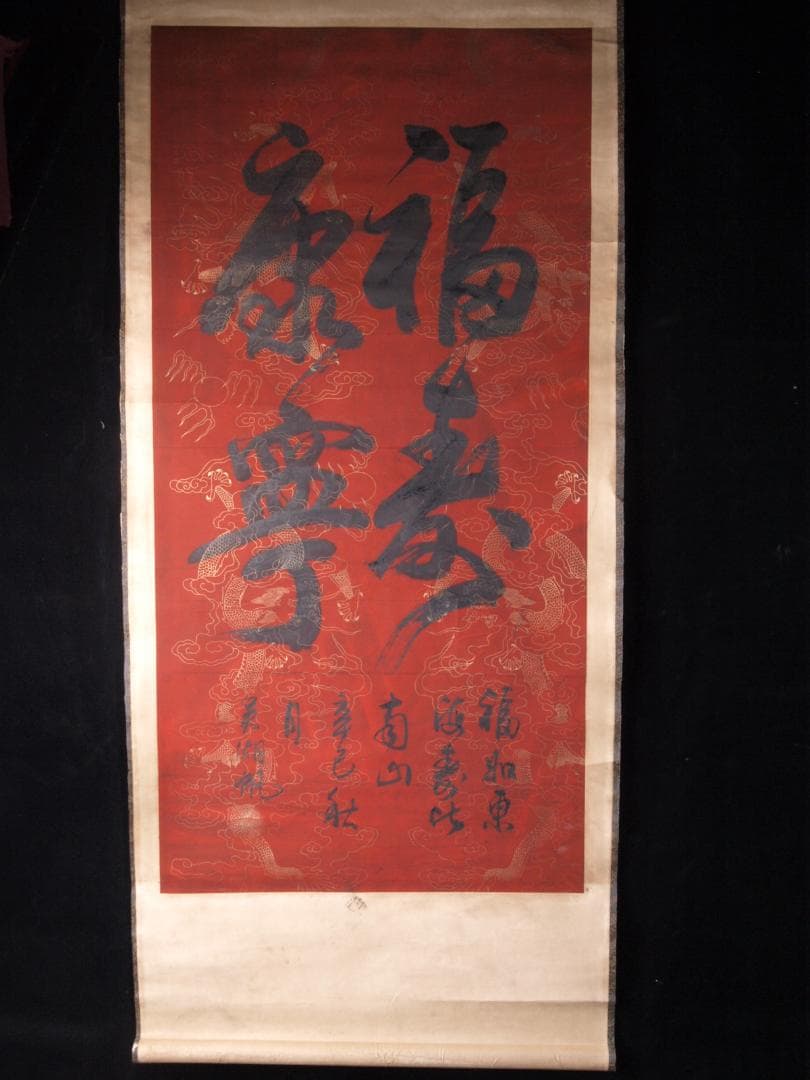 福壽
康寧
福如東
海壽比
南山
辛巳秋
月
吳湖帆